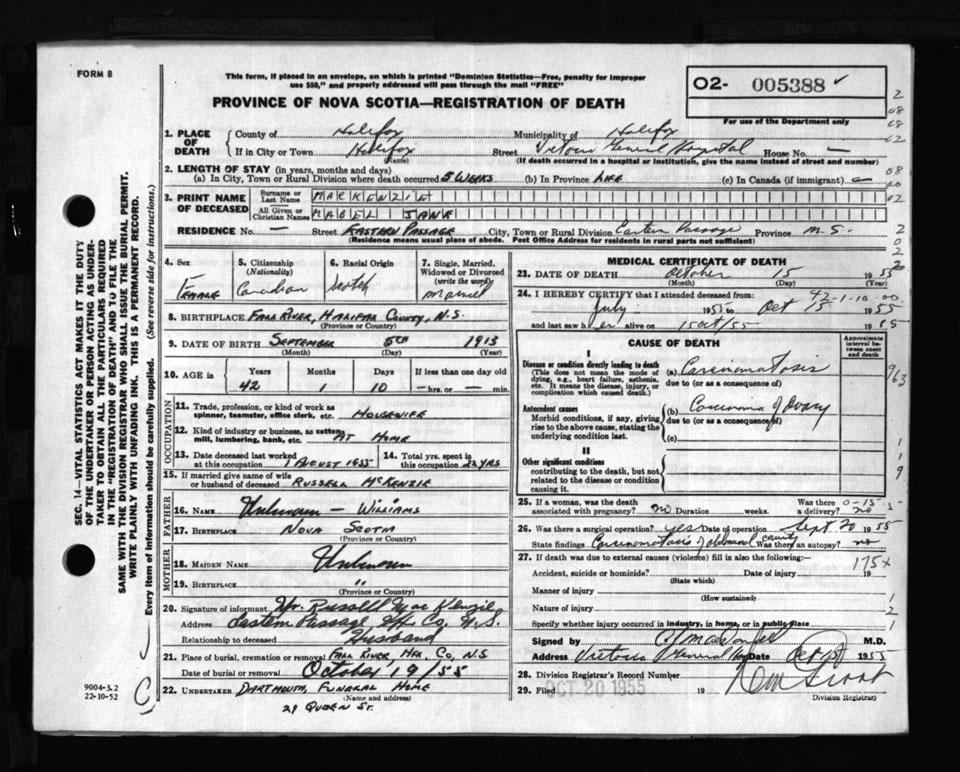 FORM 8
This form, if placed in an envelope, on which is printed "Dominion Statistics—Free, penalty for improper
use $50," and properly addressed will pass through the mail "FREE"
O2- 005388 ✓
For use of the Department only
PROVINCE OF NOVA SCOTIA—REGISTRATION OF DEATH
1. PLACE OF DEATH
County of Halifax Municipality of Halifax
If in City or Town Halifax (Name) Street Victoria General Hospital House No. —
(If death occurred in a hospital or institution, give the name instead of street and number)
2. LENGTH OF STAY (in years, months and days)
(a) In City, Town or Rural Division where death occurred 5 WEEKS (b) In Province LIFE (c) In Canada (if immigrant) —
3. PRINT NAME OF DECEASED
Surname or Last Name MACKENZIE
All Given or Christian Names MABEL JANE
RESIDENCE No. — Street EASTERN PASSAGE City, Town or Rural Division Eastern Passage Province N.S.
(Residence means usual place of abode. Post Office Address for residents in rural parts not sufficient)
4. Sex FEMALE
5. Citizenship (Nationality) Canadian
6. Racial Origin Scotch
7. Single, Married, Widowed or Divorced (write the word) Married
8. BIRTHPLACE FALL RIVER, HALIFAX COUNTY, N.S.
(Province or Country)
9. DATE OF BIRTH SEPTEMBER 5TH 1913
(Month) (Day) (Year)
10. AGE in Years 42 Months 1 Days 10 If less than one day old — hrs. or — min.
OCCUPATION
11. Trade, profession, or kind of work as spinner, teamster, office clerk, etc. HOUSEWIFE
12. Kind of industry or business, as cotton mill, lumbering, bank, etc. AT HOME
13. Date deceased last worked at this occupation 1 AUGUST 1955
14. Total yrs. spent in this occupation 22 YRS
15. If married give name of wife or husband of deceased RUSSELL MCKENZIE
FATHER
16. Name Unknown — WILLIAMS
17. Birthplace NOVA SCOTIA
(Province or Country)
MOTHER
18. MAIDEN NAME Unknown
19. BIRTHPLACE "
(Province or Country)
20. Signature of informant Mr. Russell MacKenzie
Address Eastern Passage Hfx. Co, N.S.
Relationship to deceased Husband
21. Place of burial, cremation or removal FALL RIVER, HFX. CO, N.S
Date of burial or removal October 19/55
22. UNDERTAKER DARTMOUTH, FUNERAL HOME
(Name and address)
28 QUEEN ST.
9004-3.2
22-10-52
C
MEDICAL CERTIFICATE OF DEATH
23. DATE OF DEATH October 15 1955
(Month) (Day)
24. I HEREBY CERTIFY that I attended deceased from: 42-1-10-00
July 1955 to Oct 15 1955
and last saw her alive on 15 Oct/55 1955
CAUSE OF DEATH
Approximate interval between onset and death
I
Disease or condition directly leading to death
(This does not mean the mode of dying, e.g., heart failure, asthenia, etc. It means the disease, injury, or complication which caused death.)
(a) Carcinomatosis
due to (or as a consequence of)
Antecedent causes
Morbid conditions, if any, giving rise to the above cause, stating the underlying condition last.
(b) Carcinoma of Ovary
due to (or as a consequence of)
(c)
II
Other significant conditions
contributing to the death, but not related to the disease or condition causing it.
25. If a woman, was the death associated with pregnancy? no Duration weeks. Was there a delivery? no
0-15
26. Was there a surgical operation? yes Date of operation Sept 20 1955
State findings Carcinomatosis of abdominal cavity Was there an autopsy? no
27. If death was due to external causes (violence) fill in also the following:—
175x
Accident, suicide or homicide? Date of injury 19
(State which)
Manner of injury
(How sustained)
Nature of injury
Specify whether injury occurred in industry, in home, or in public place
Signed by M.D.
Address Victoria General Hosp Date Oct 1955
28. Division Registrar's Record Number
29. Filed OCT 20 1955 19
Division Registrar
SEC. 14—VITAL STATISTICS ACT MAKES IT THE DUTY
OF THE UNDERTAKER OR PERSON ACTING AS UNDER-
TAKER TO OBTAIN ALL THE PARTICULARS REQUIRED
IN THE "REGISTRATION OF DEATH" AND TO FILE THE
SAME WITH THE DIVISION REGISTRAR WHO SHALL ISSUE THE BURIAL PERMIT.
WRITE PLAINLY WITH UNFADING INK. THIS IS A PERMANENT RECORD.
Every item of information should be carefully supplied. (See reverse side for instructions.)